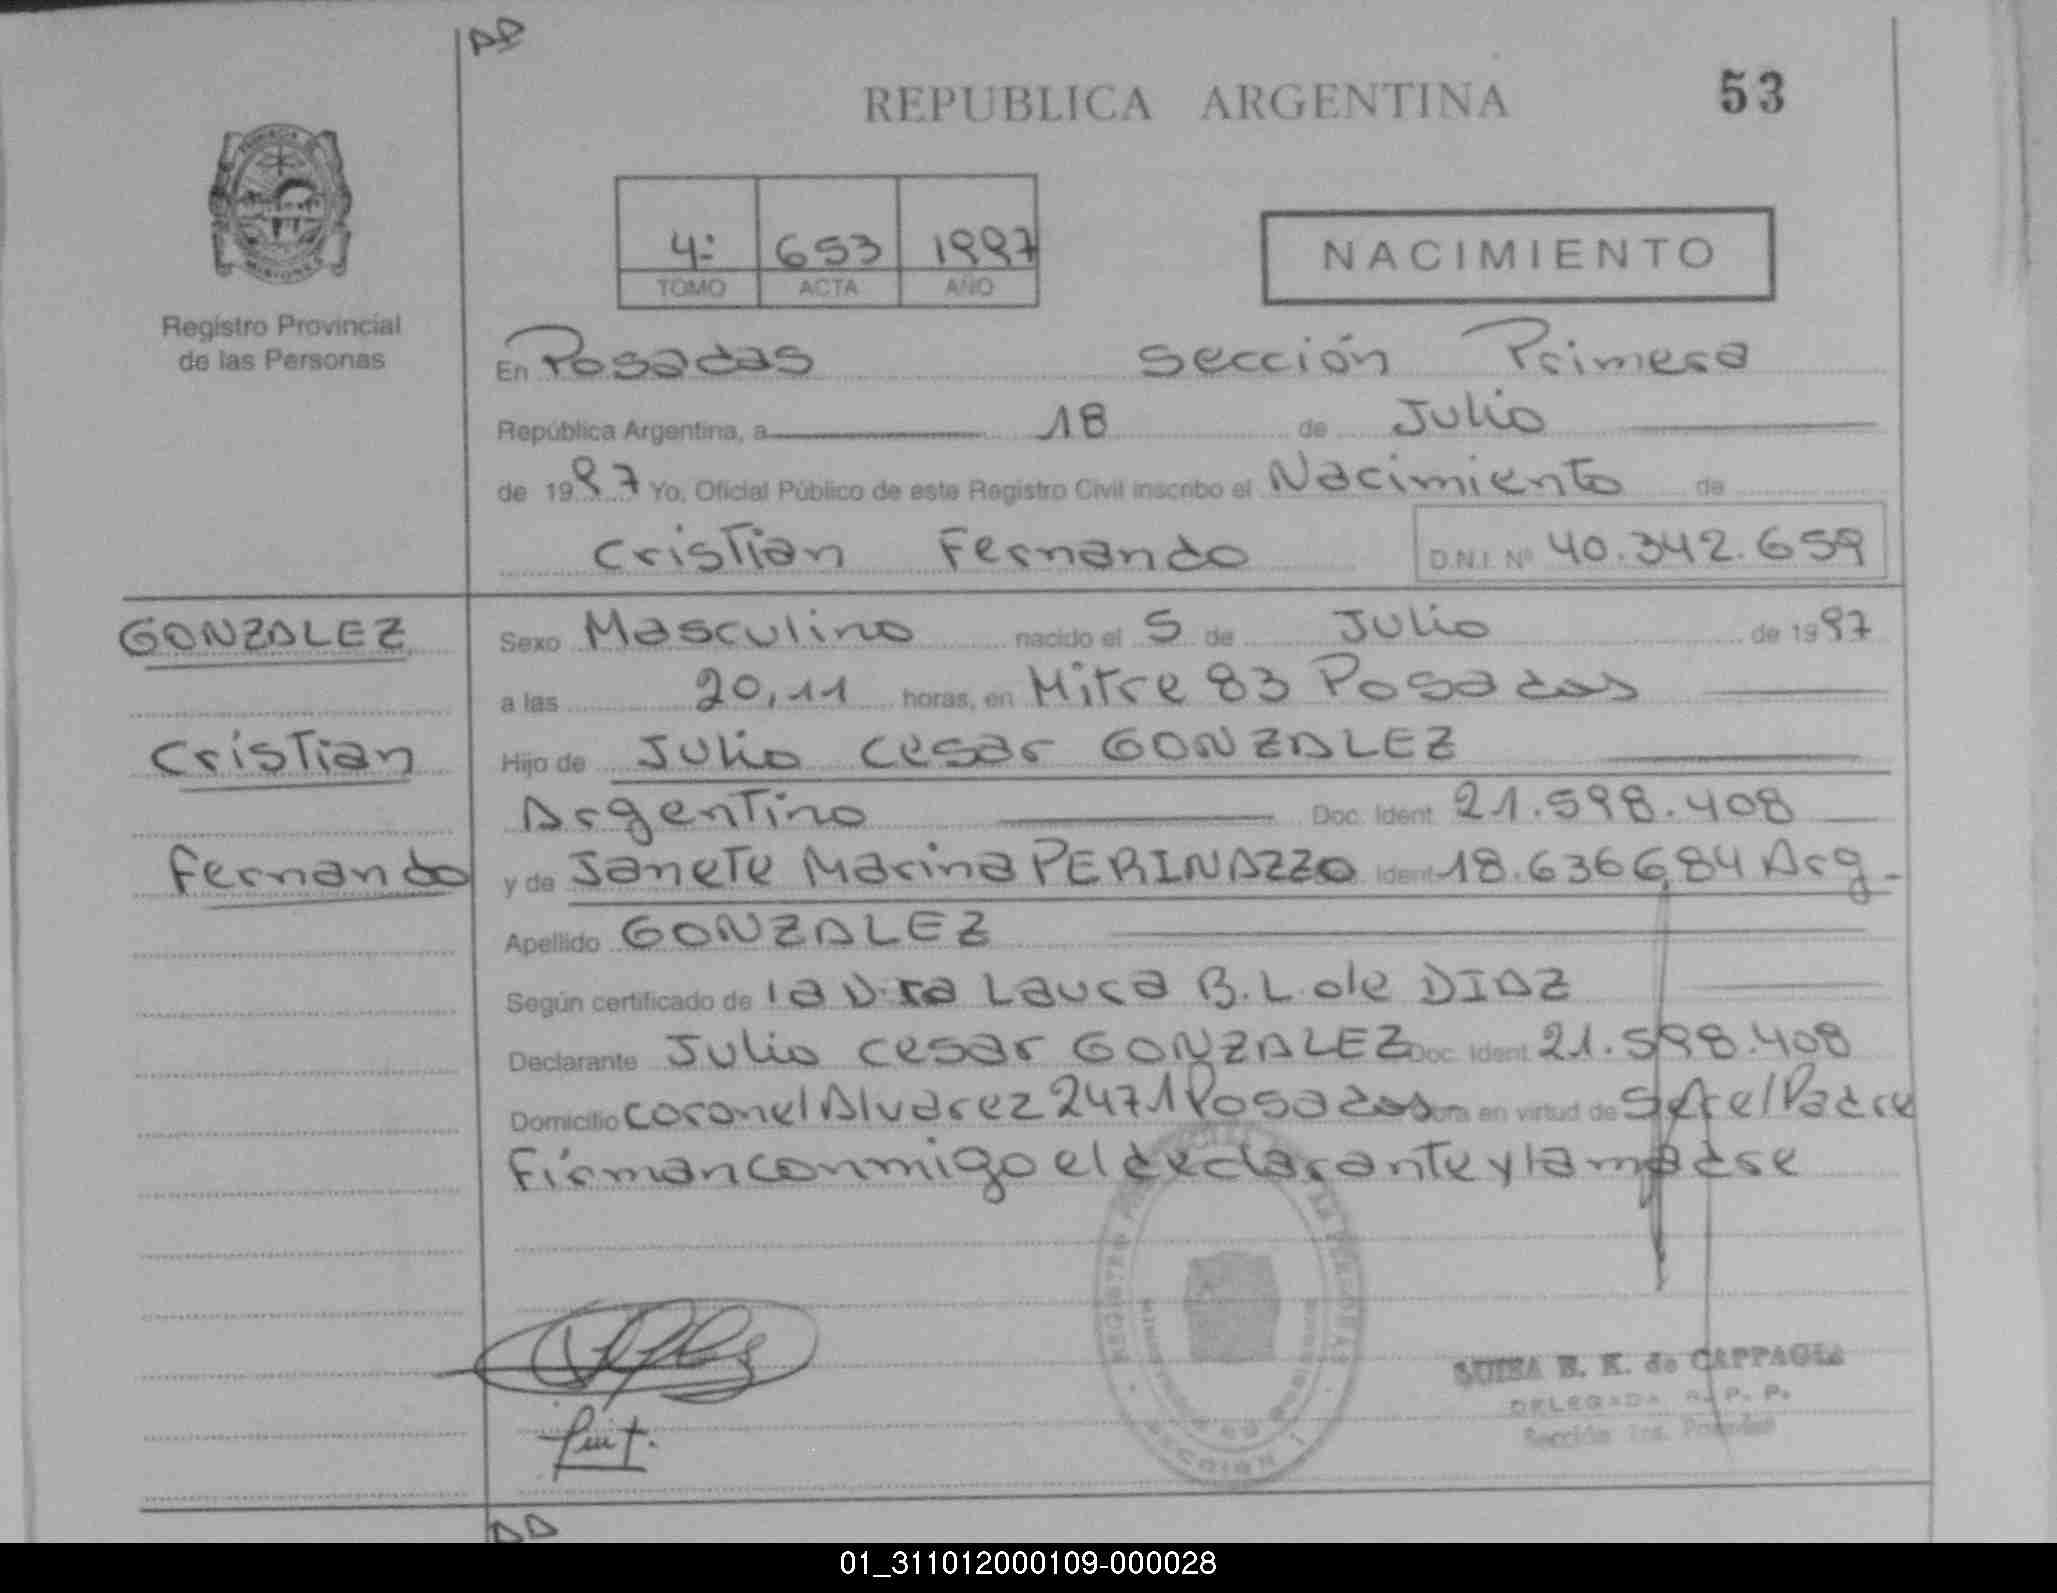 AP
REPUBLICA ARGENTINA
53
PROVINCIA
MISIONES
Registro Provincial
de las Personas
4º 653 1997
TOMO ACTA AÑO
NACIMIENTO
En Posadas Sección Primera
República Argentina, a 18 de Julio
de 1997 Yo, Oficial Público de este Registro Civil inscribo el Nacimiento de
Cristian Fernando D.N.I. Nº 40.342.659
GONZALEZ
Cristian
Fernando
Sexo Masculino nacido el 5 de Julio de 1997
a las 20,11 horas, en Mitre 83 Posadas
Hijo de Julio Cesar GONZALEZ
Argentino Doc. Ident. 21.598.408
y de Janete Marina PERINAZZO Ident 18.636,684 Arg.
Apellido GONZALEZ
Según certificado de la Dra Laura B.L. de DIAZ
Declarante Julio Cesar GONZALEZ Doc. Ident. 21.598.408
Domicilio Coronel Alvarez 2471 Posadas obra en virtud de ser el Padre
Firman conmigo el declarante y la madre
REGISTRO DE LAS PERSONAS
PROVINCIA DE MISIONES
SECCION 1
E. K. de CAPPAGLI
DELEGADA R. P. P.
Sección 1ra. Posadas
01_311012000109-000028